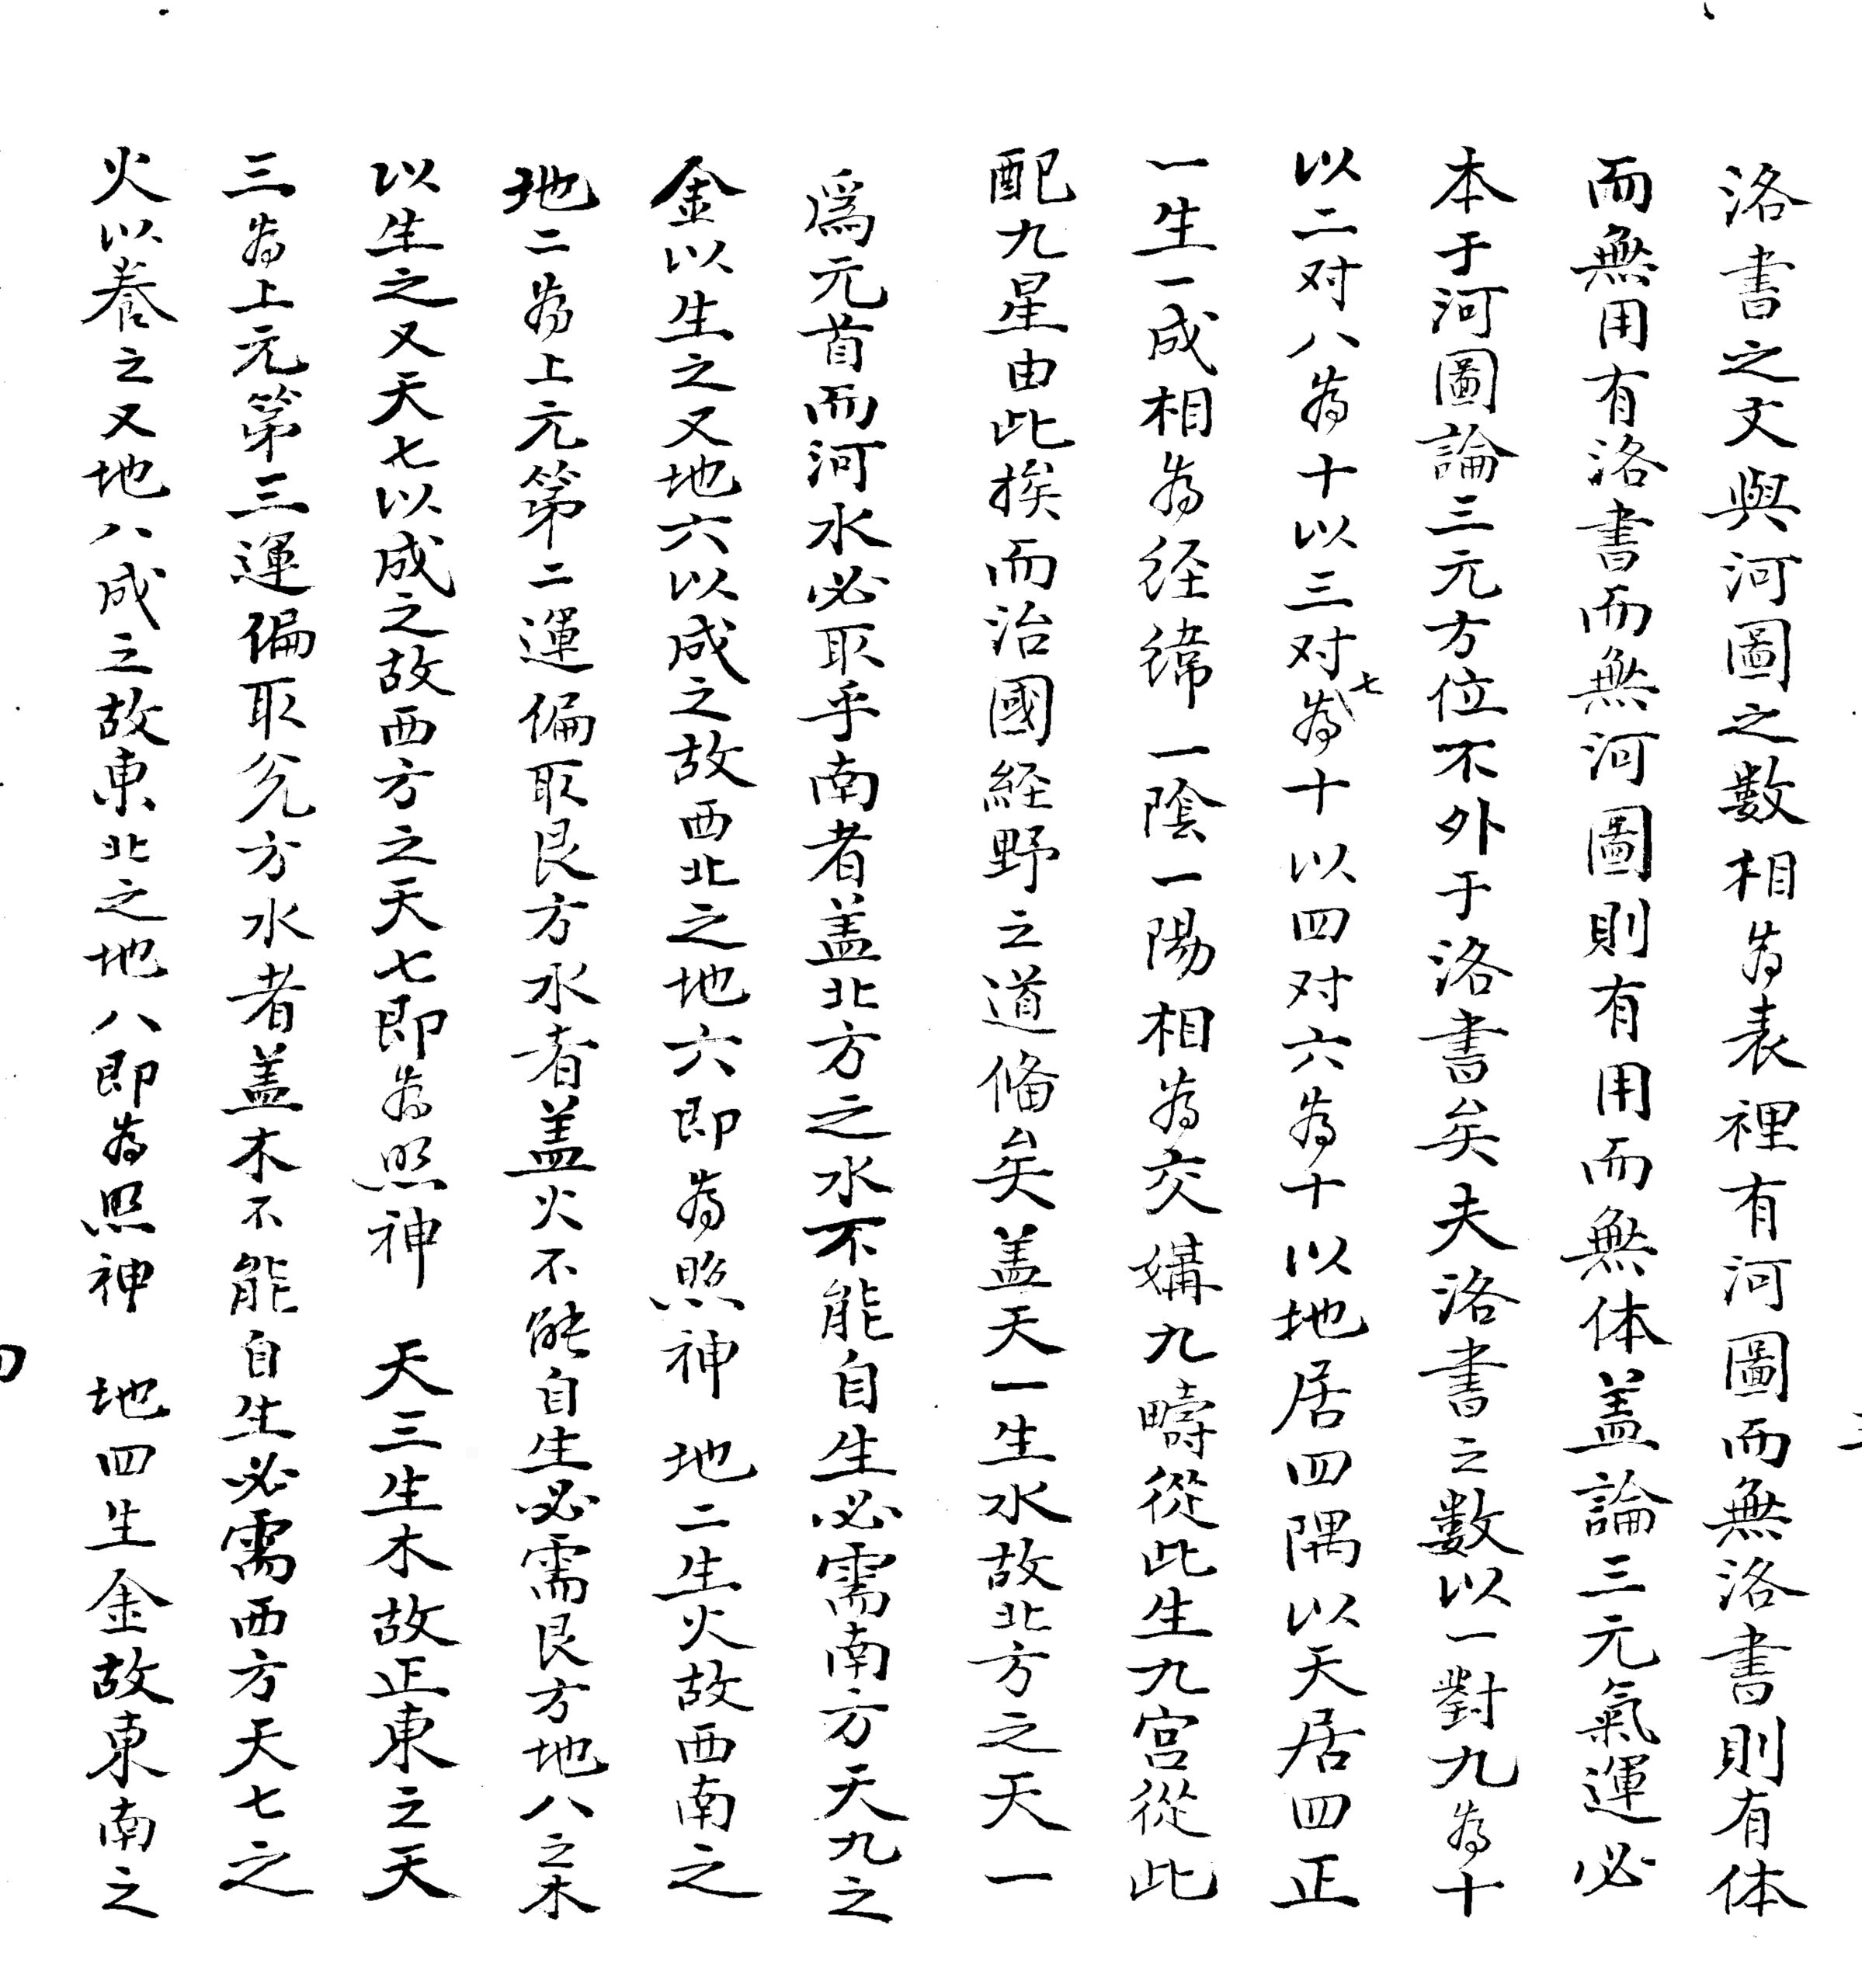 洛書之文與河圖之數相為表裡有河圖而無洛書則有体
而無用有洛書而無河圖則有用而無体盖論三元氣運必
本于河圖論三元方位不外于洛書矣夫洛書之數以一對九為十
以二对八為十以三对七為十以四对六為十以地居四隅以天居四正
一生一成相為経緯一陰一陽相為交媾九疇從此生九宮從此
配九星由此挨而治國経野之道俻矣盖天一生水故北方之天一
爲元首而河水必取乎南者盖北方之水不能自生必需南方天九之
金以生之又地六以成之故西北之地六即為照神 地二生火故西南之
地二為上元第二運偏取艮方水者盖火不能自生必需艮方地八之木
以生之又天七以成之故西方之天七即為照神 天三生木故正東之天
三為上元第三運偏取兊方水者盖木不能自生必需西方天七之
火以养之又地八成之故東北之地八即為照神 地四生金故東南之